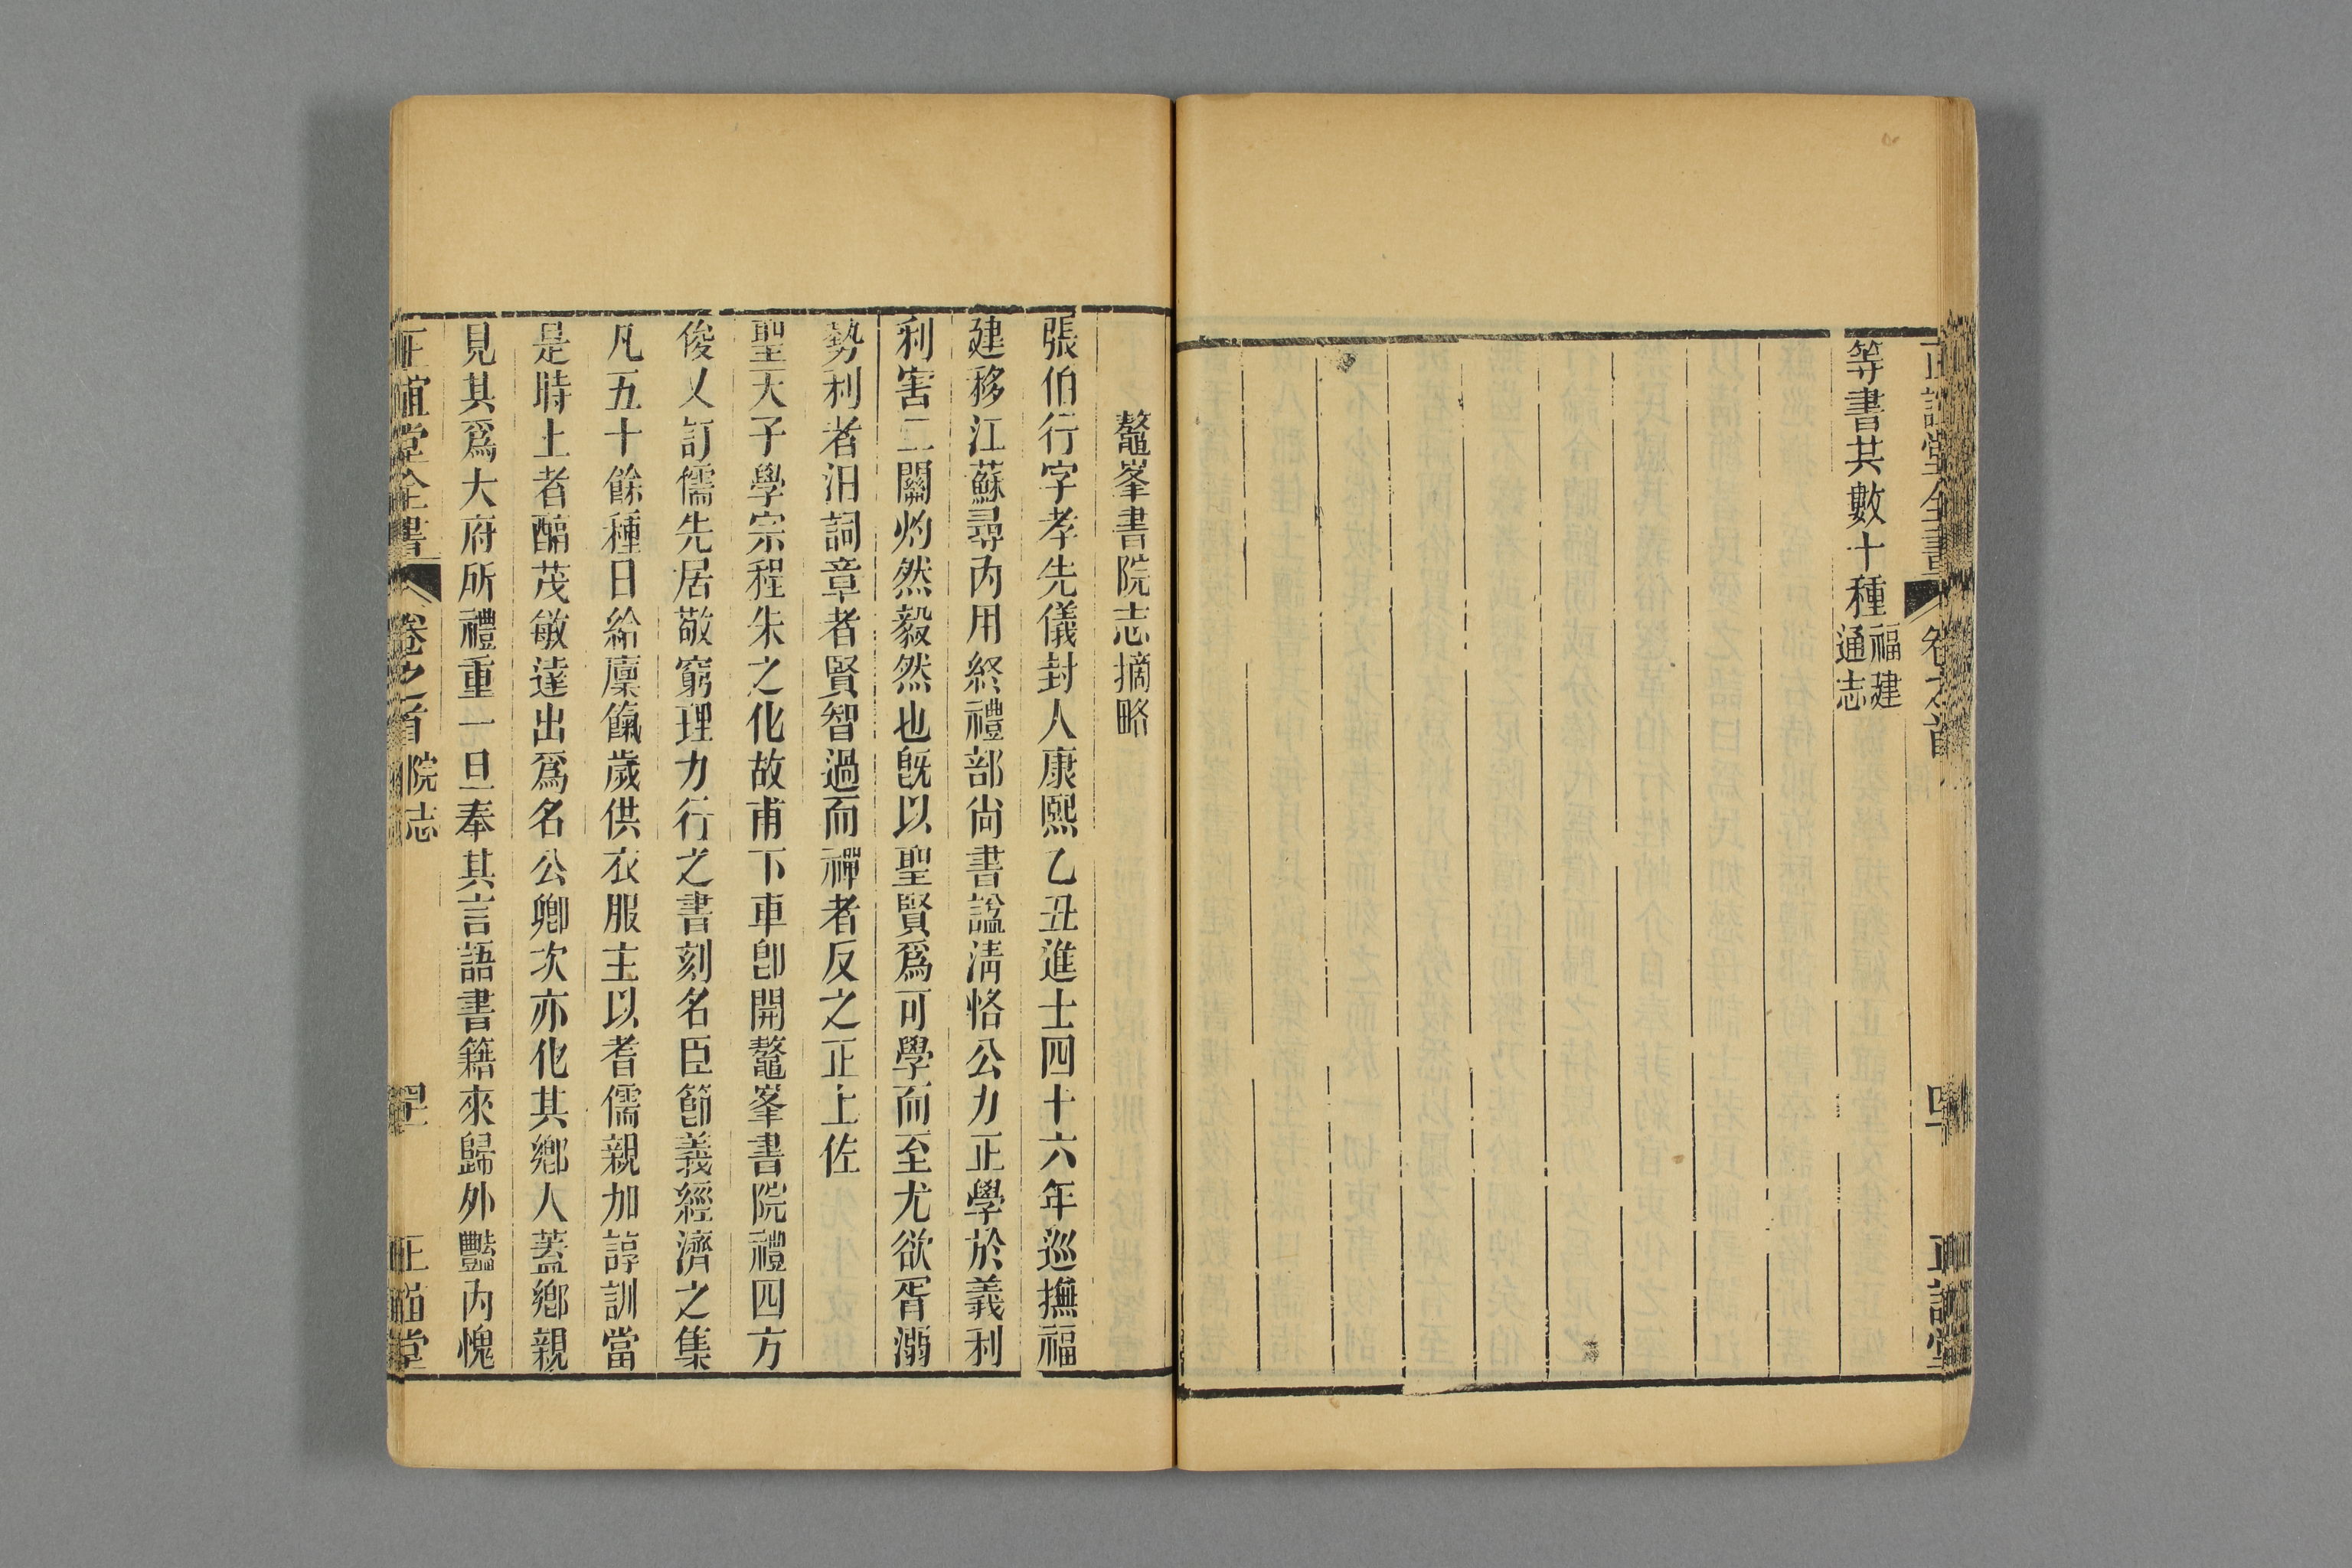 正誼堂全書 卷之首 正誼堂
等書共數十種福建通志
鼇峯書院志摘略
張伯行字孝先儀封人康熙乙丑進士四十六年巡撫福
建移江蘇尋內用終禮部尙書諡淸恪公力正學於義利
利害二關灼然毅然也旣以聖賢爲可學而至尤欲胥溺
勢利者汨詞章者賢智過而禪者反之正上佐
聖天子學宗程朱之化故甫下車卽開鼇峯書院禮四方
俊乂訂儒先居敬窮理力行之書刻名臣節義經濟之集
凡五十餘種日給廩餼歲供衣服主以耆儒親加諄訓當
是時上者醕茂敏達出爲名公卿次亦化其鄕人蓋鄕親
見其爲大府所禮重一旦奉其言語書籍來歸外豔內愧
正誼堂全書 卷之首 院志 正誼堂